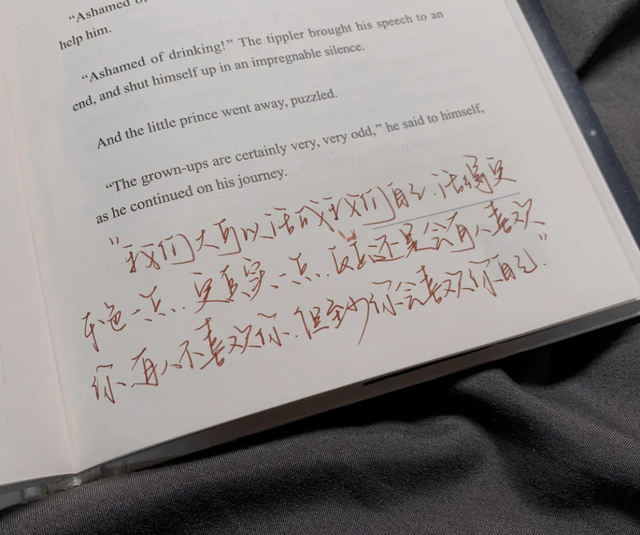 “Ashamed o
help him.
“Ashamed of drinking!” The tippler brought his speech to an
end, and shut himself up in an impregnable silence.
And the little prince went away, puzzled.
“The grown-ups are certainly very, very odd,” he said to himself,
as he continued on his journey.
“我们大可以活成我们自己.活得更
本色一点..更真实一点..反正还是会有人喜欢
你.有人不喜欢你.但至少你会喜欢你自己.”